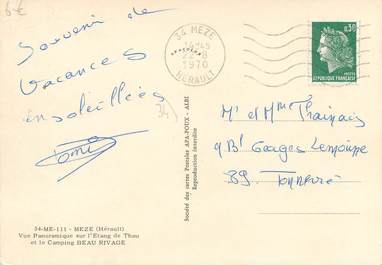 6€
Souvenir de
Vacances
ensoleillées
34 MEZE
18H45
22-8
1970
HERAULT
0,30
POSTES
REPUBLIQUE FRANÇAISE
Mr et Mme
9 Bd Georges
89 Tonnerre
34)
Société des cartes Postales APA-POUX - ALBI
Reproduction interdite
34-ME-111 - MEZE (Hérault)
Vue Panoramique sur l'Etang de Thau
et le Camping BEAU RIVAGE